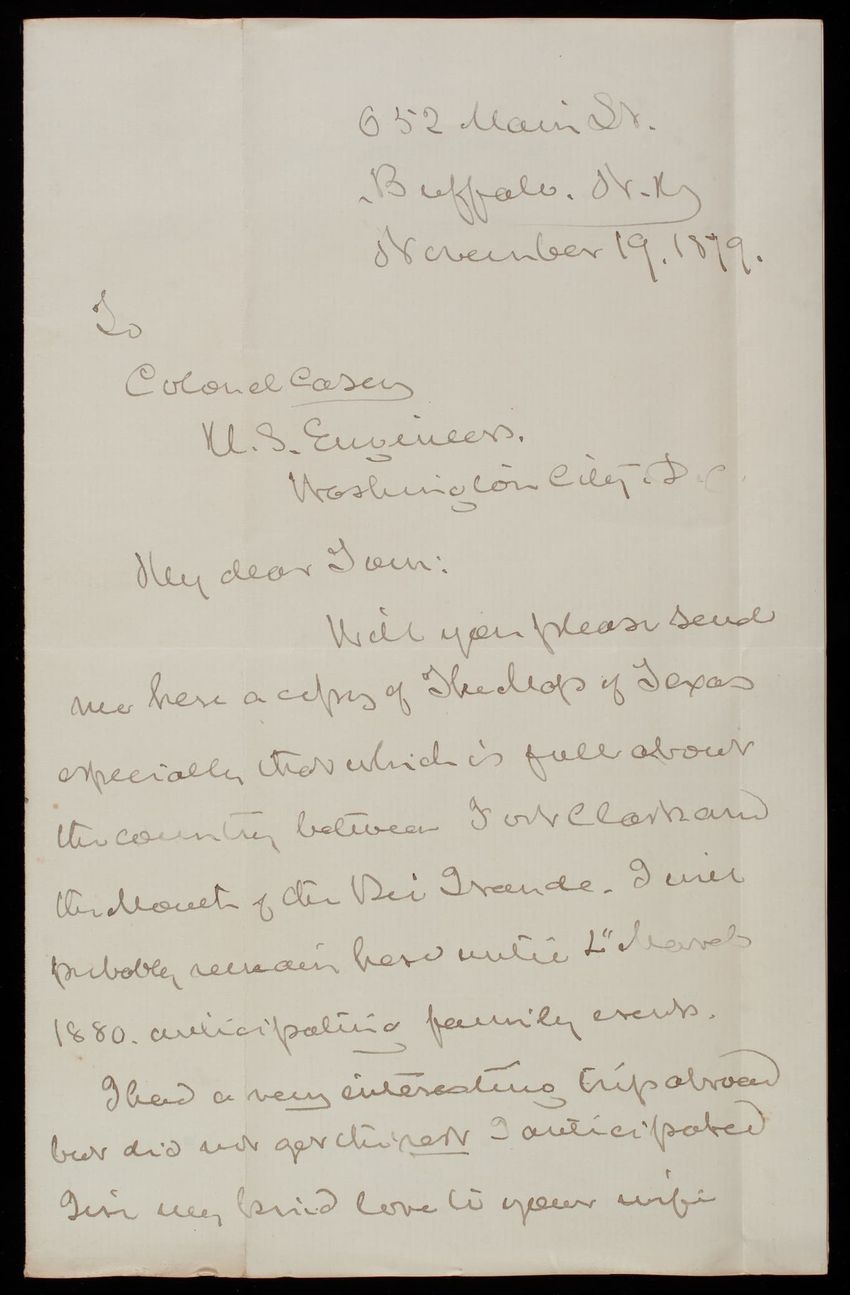 652 Main St.
Buffalo. N.Y
November 19, 1879.
To
Colonel Casey
U.S. Engineers.
Washington City. D.C.
My dear Tom:
Will you please send
me here a copy of The Map of Texas
especially that which is full about
the country between Fort Clark and
the Mouth of the Rio Grande. I will
probably remain here until 1" March
1880. anticipating family events.
I had a very interesting trip abroad
but did not get the rest I anticipated
Give my kind love to your wife